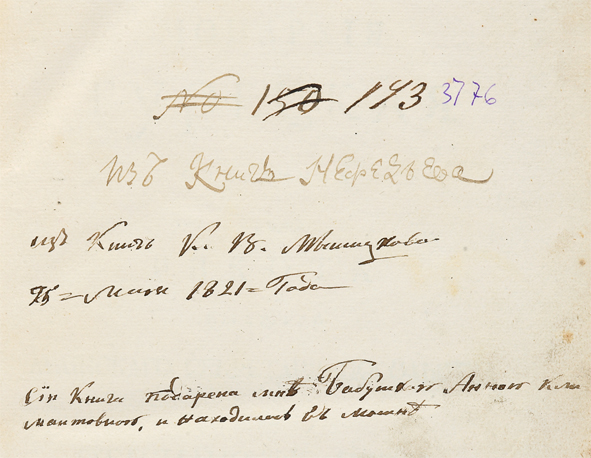 № 150 143 3776
Изъ Книгъ Нефедьева
изъ Книгъ К. В.
25 = Маия 1821 = Года
Сiя Книга подарена мнѣ Бабушкою Анною Кли
мантовною, и находилась въ